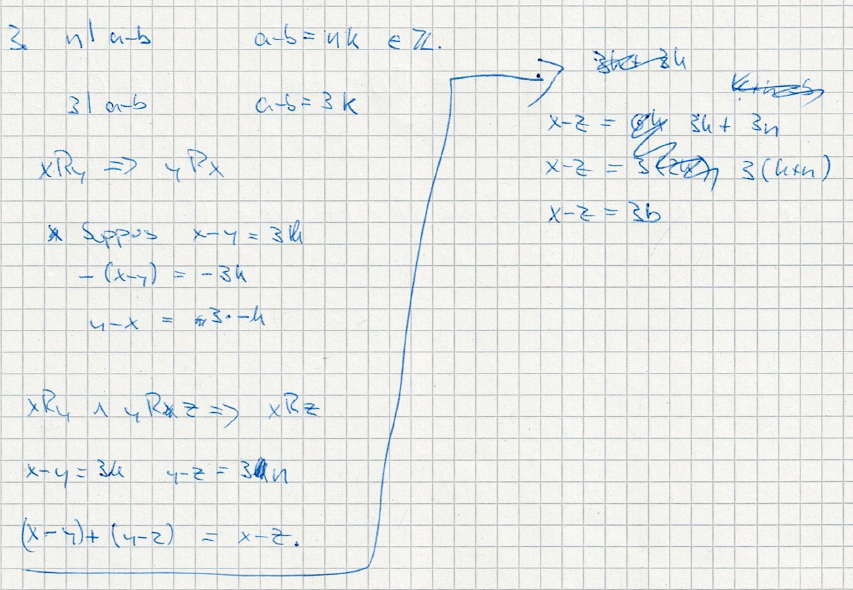 3. n | a-b a-b = nk ∈ ℤ.
3 | a-b a-b = 3k
xRy => yRx
Suppos x-y = 3k
-(x-y) = -3k
y-x = 3·-k
xRy ∧ yRz => xRz
x-y = 3k y-z = 3n
(x-y)+(y-z) = x-z.
x-z = 3k + 3n
x-z = 3(k+n)
x-z = 3b